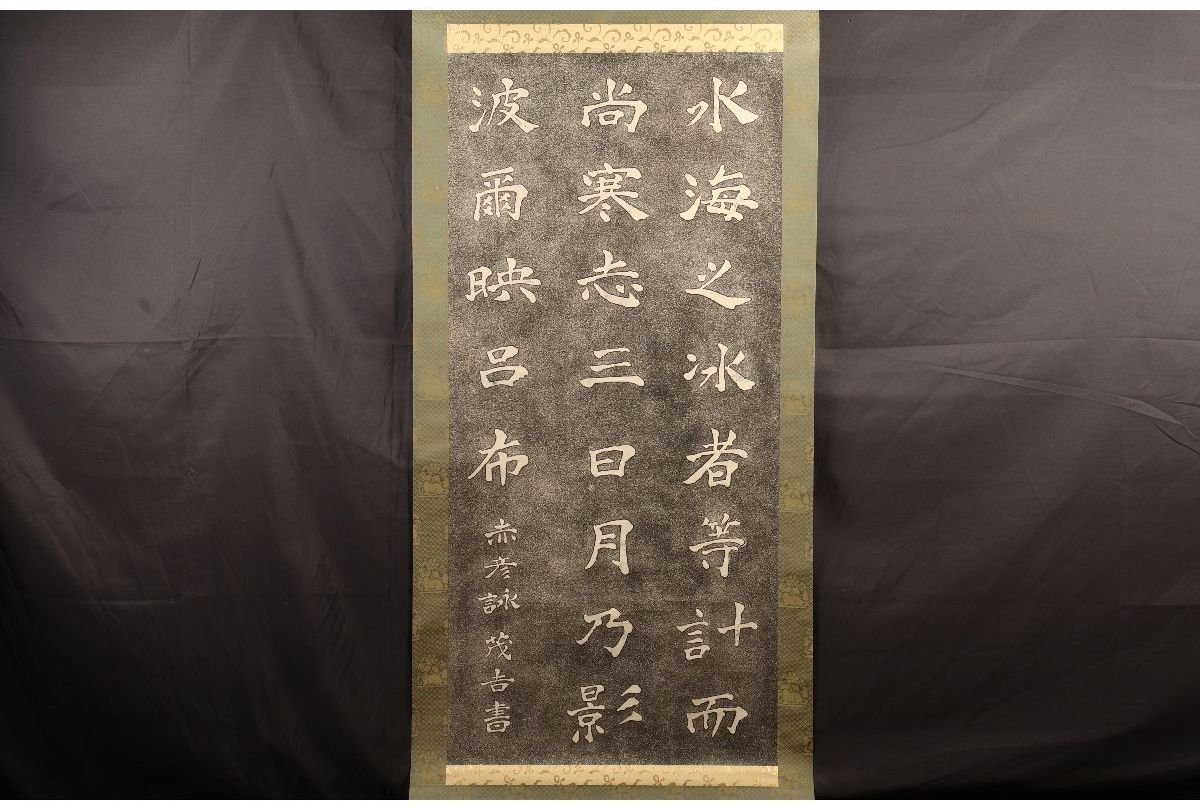 水海之冰者等計而
尚寒志三日月乃影
波爾映呂布 赤彦詠 茂吉書